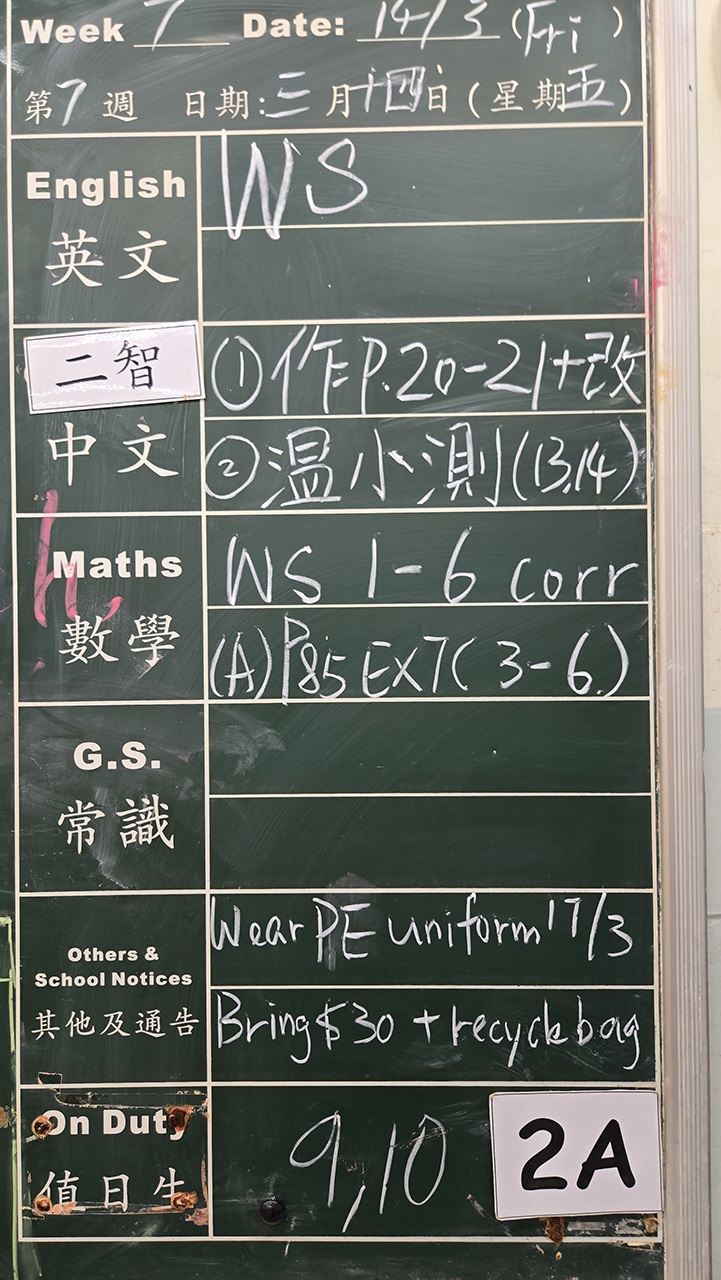 Week 7 Date: 14/3 (Fri)
第7週 日期:三月十四日(星期五)
English WS
英文
二智 ①作P.20-21+改
中文 ②温小測(13,14)
Maths WS 1-6 corr
數學 (A)P85 EX7(3-6.)
G.S.
常識
Wear PE uniform 17/3
Others &
School Notices
其他及通告 Bring $30 + recycle bag
On Duty 9,10 2A
值日生